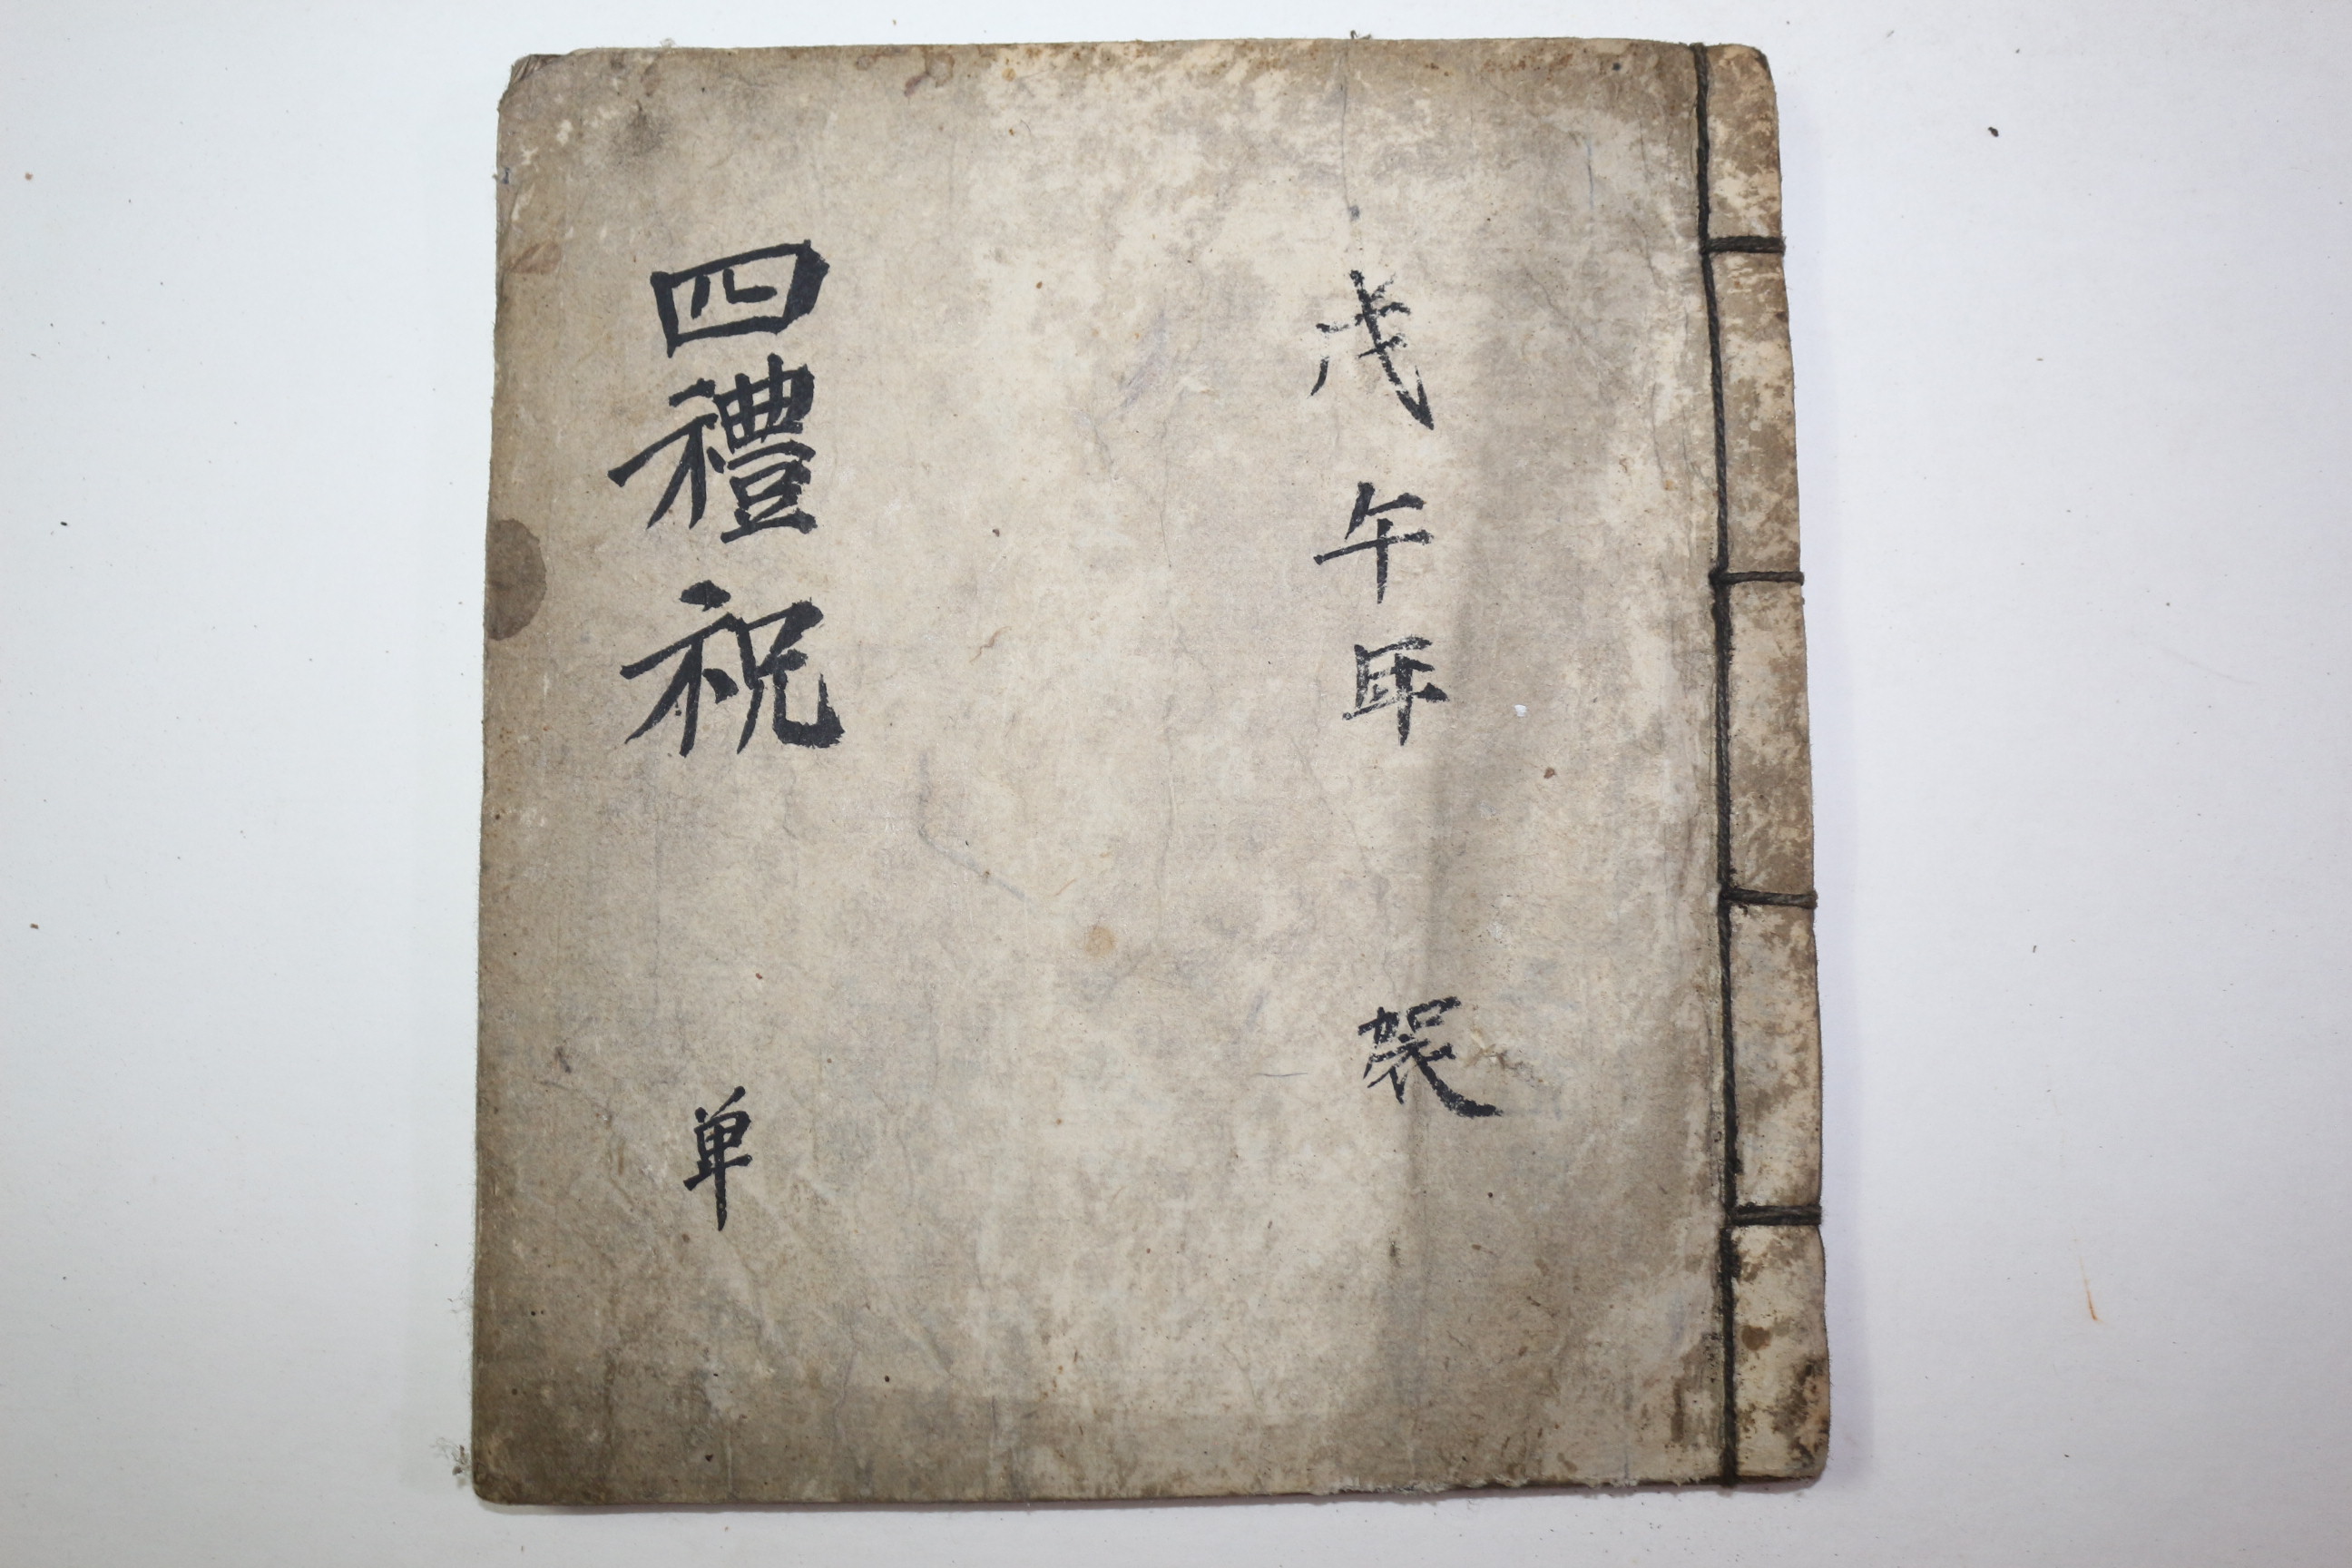 戊午年 製
四禮祝 单